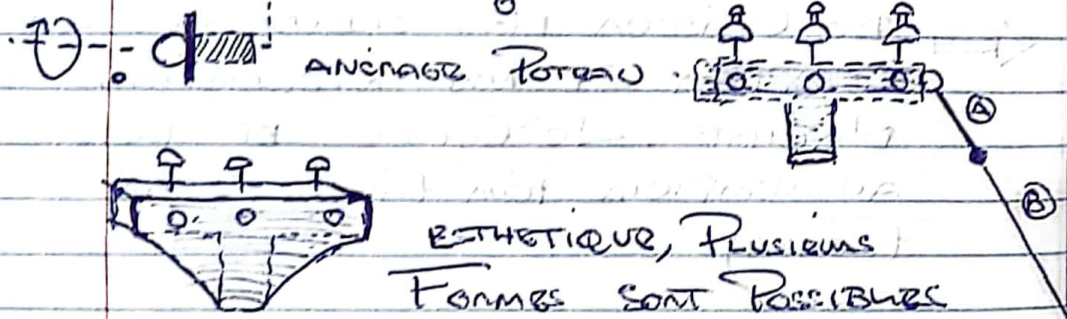 ANCRAGE POTEAU
A
B
ESTHETIQUE, PLUSIEURS
FORMES SONT POSSIBLES